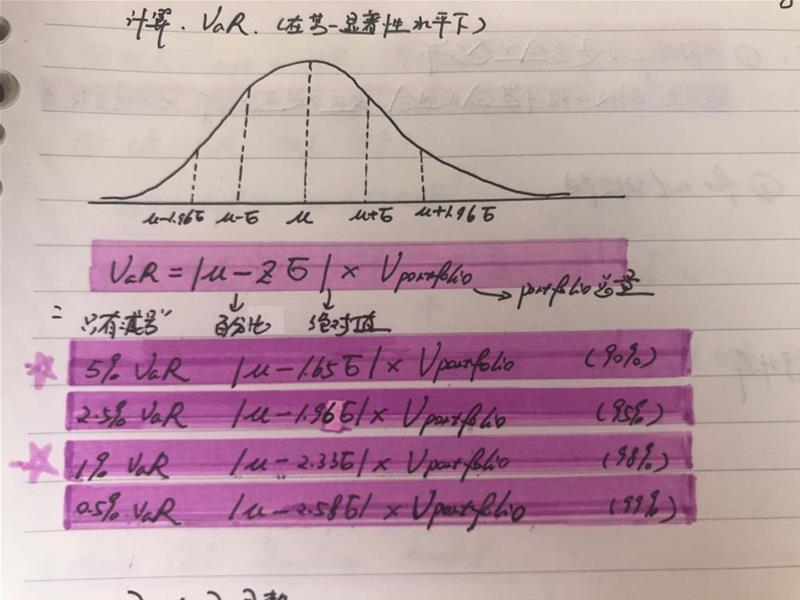 计算. VaR. (在某一显著性水平下)
μ-1.96σ μ-σ μ μ+σ μ+1.96σ
VaR = |μ - zσ| × Vportfolio
portfolio总量
只有减号 百分比 绝对值
5% VaR |μ-1.65σ| × Vportfolio (90%)
2.5% VaR |μ-1.96σ| × Vportfolio (95%)
1% VaR |μ-2.33σ| × Vportfolio (98%)
0.5% VaR |μ-2.58σ| × Vportfolio (99%)